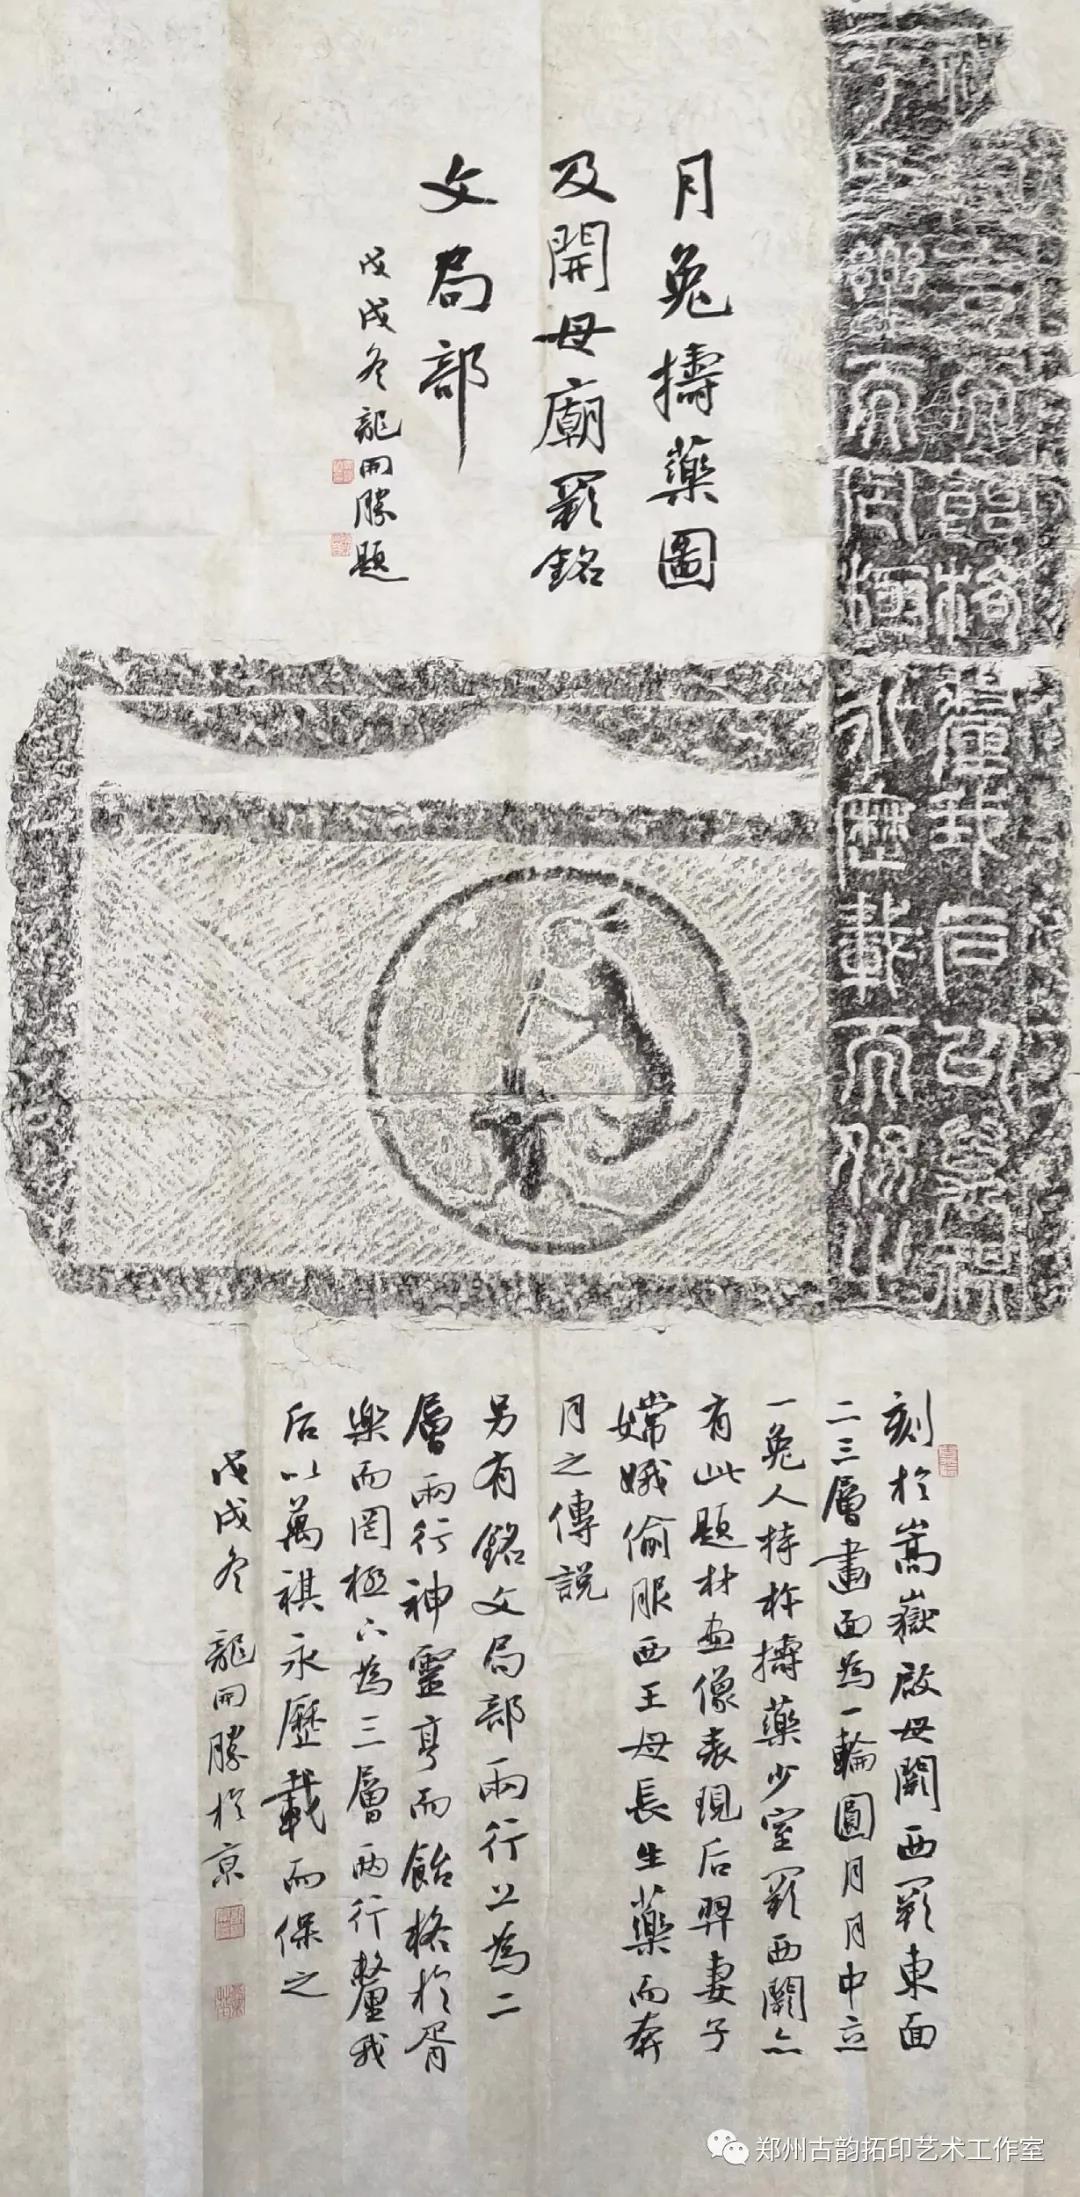 月兔擣藥圖
及開母廟闕銘
文局部
戊戌冬龍開勝題
而飴格
釐我后以萬祺
于胥樂而罔極
永歷載而保之
刻於嵩嶽啟母闕西闕東面
二三層畫面為一輪圓月月中立
一兔人持杵擣藥少室闕西闕亦
有此題材畫像表現后羿妻子
嫦娥偷服西王母長生藥而奔
月之傳說
另有銘文局部兩行上為二
層兩行神靈享而飴格於胥
樂而罔極下為三層兩行釐我
后以萬祺永歷載而保之
戊戌冬龍開勝於京
郑州古韵拓印艺术工作室